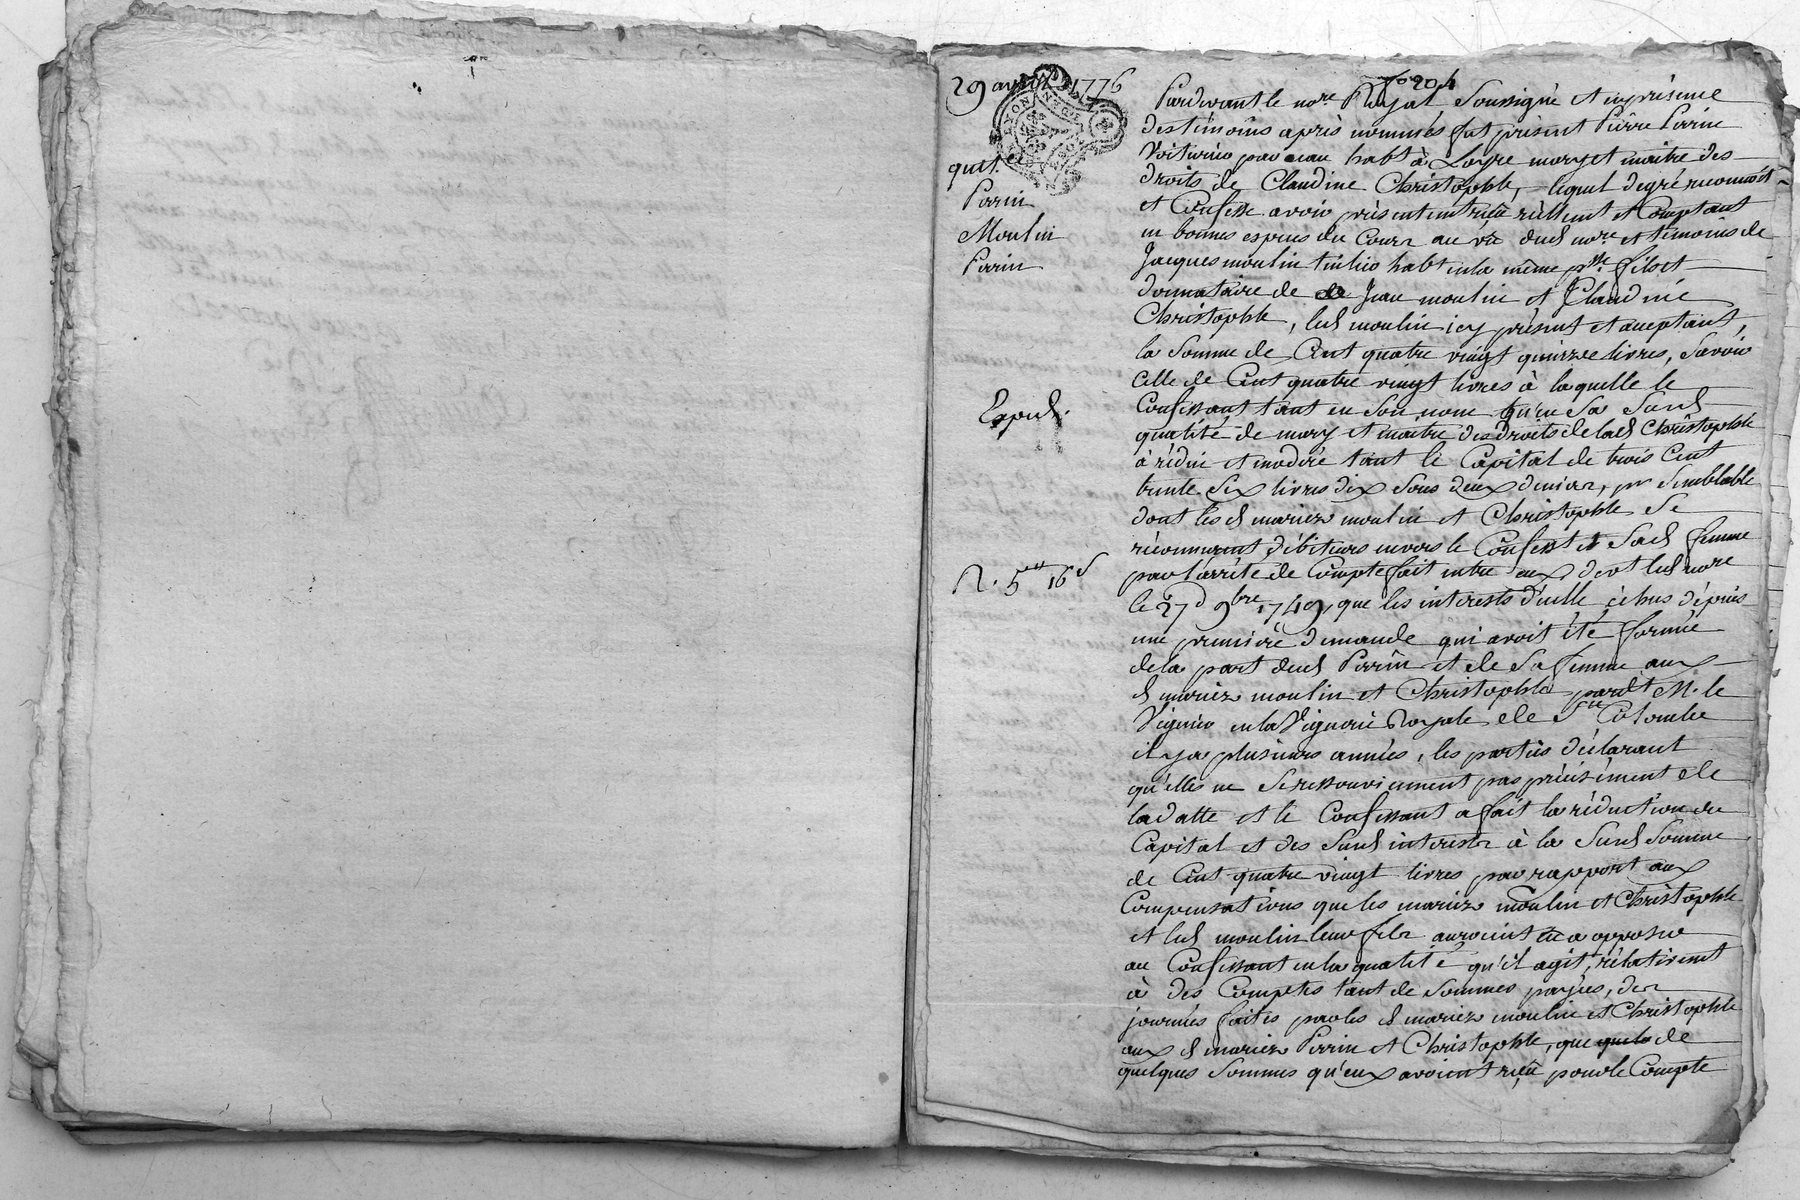 29 avril 1776
quit.ce
Perrin
Moulin
Perrin
Expéd.
R. 5ᴸ 16ˢ
fo 204
Pardevant le nore Royal Soussigné et en présence
des témoins après nommés fut présent Pierre Perrin
Voiturier par eau habt à Loyre mary et maitre des
droits de Claudine Christophle, lequel de gré reconnoit
et Confesse avoir présentemt reçû réellemt et Comptant
en bonnes espèces du Cours au vû dud nore et témoins de
Jacques moulin habt en la même psse fils et
donnataire de Jean moulin et Claudine
Christophle, led moulin icy présent et acceptant,
la Somme de Cent quatre vingt quinze livres, Savoir
Celle de Cent quatre vingt livres à laquelle le
Confessant tant en Son nom qu'en Sa Susd
qualité de mary et maitre des droits de lad Christophle
à réduit et modéré tant le Capital de trois Cent
trente Six livres dix Sous deux deniers, pr Semblable
dont les d mariez moulin et Christophle Se
réconnurent débiteurs envers le Confesst et Sad femme
par l'arrêté de Compte fait entre eux devt led nore
le 27d 9bre 1749, que les interests d'icelle échus dépuis
une première demande qui avoit été formée
de la part dud Perrin et de Sa femme aux
d mariez moulin et Christophle pardt M. le
Viguier en la Viguerie Royale de Ste Colombe
il y a plusieurs années, les parties déclarant
qu'elles ne Se ressouviennent pas précisément de
la datte et le Confessant a fait la réduction du
Capital et des Susd interests à la Susd Somme
de Cent quatre vingt livres par rapport aux
Compensations que les mariez moulin et Christophle
et led moulin leur fils auroient eû a opposer
au Confessant en la qualité qu'il agit, rélativemt
à des Comptes tant de Sommes payées, des
journées faites par les d mariez moulin et Christophle
aux d mariez Perrin et Christophle, que de
quelques Sommes qu'eux avoient reçû pour le Compte